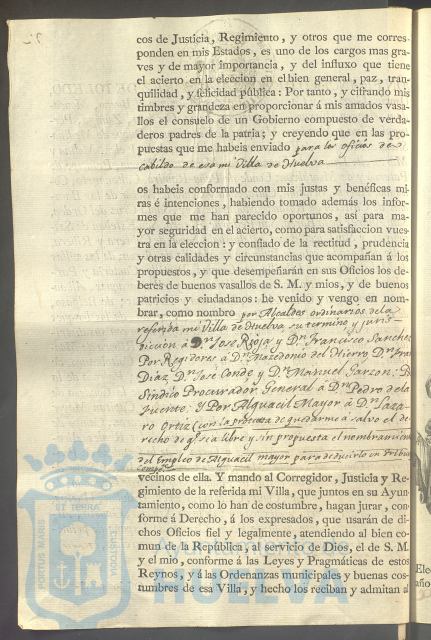 cos de Justicia, Regimiento, y otros que me corres-
ponden en mis Estados, es uno de los cargos mas gra-
ves y de mayor importancia, y del influxo que tiene
el acierto en la eleccion en el bien general, paz, tran-
quilidad, y felicidad pública: Por tanto, y cifrando mis
timbres y grandeza en proporcionar á mis amados vasa-
llos el consuelo de un Gobierno compuesto de verda-
deros padres de la patria; y creyendo que en las pro-
puestas que me habeis enviado para los oficios de
Cabildo de esa mi Villa de Huelva
os habeis conformado con mis justas y benéficas mi-
ras é intenciones, habiendo tomado además los infor-
mes que me han parecido oportunos, así para ma-
yor seguridad en el acierto, como para satisfaccion vues-
tra en la eleccion: y confiado de la rectitud, prudencia
y otras calidades y circunstancias que acompañan á los
propuestos, y que desempeñarán en sus Oficios los de-
beres de buenos vasallos de S. M. y mios, y de buenos
patricios y ciudadanos: he venido y vengo en nom-
brar, como nombro por Alcaldes ordinarios de la
referida mi Villa de Huelva su termino y juris-
diccion á Dn. Jose Rioja y Dn. Francisco Sanchez
Por Regidores á Dn. Mazedonio del Hierro Dn. Fran
Diaz, Dn. José Conde y Dn. Manuel Garzon: P
Sindico Procurador General á Dn. Pedro de la
Fuente: Y Por Alguacil Mayor á Dn. Laza-
ro Ortiz (con la protexta de quedarme á salvo el de-
recho de qe. sea libre y sin propuesta el nombramien
del Empleo de Alguacil mayor para deducirlo en
vecinos de ella. Y mando al Corregidor, Justicia y Re-
gimiento de la referida mi Villa, que juntos en su Ayun-
tamiento, como lo han de costumbre, hagan jurar, con-
forme á Derecho, á los expresados, que usarán de di-
chos Oficios fiel y legalmente, atendiendo al bien co-
mun de la República, al servicio de Dios, el de S. M.
y el mio, conforme á las Leyes y Pragmáticas de estos
Reynos, y á las Ordenanzas municipales y buenas cos-
tumbres de esa Villa, y hecho los reciban y admitan al
Ele
año
PORTUS MARIS
ET TERRAE
CUSTODIA
Ayuntamiento de
HUELVA